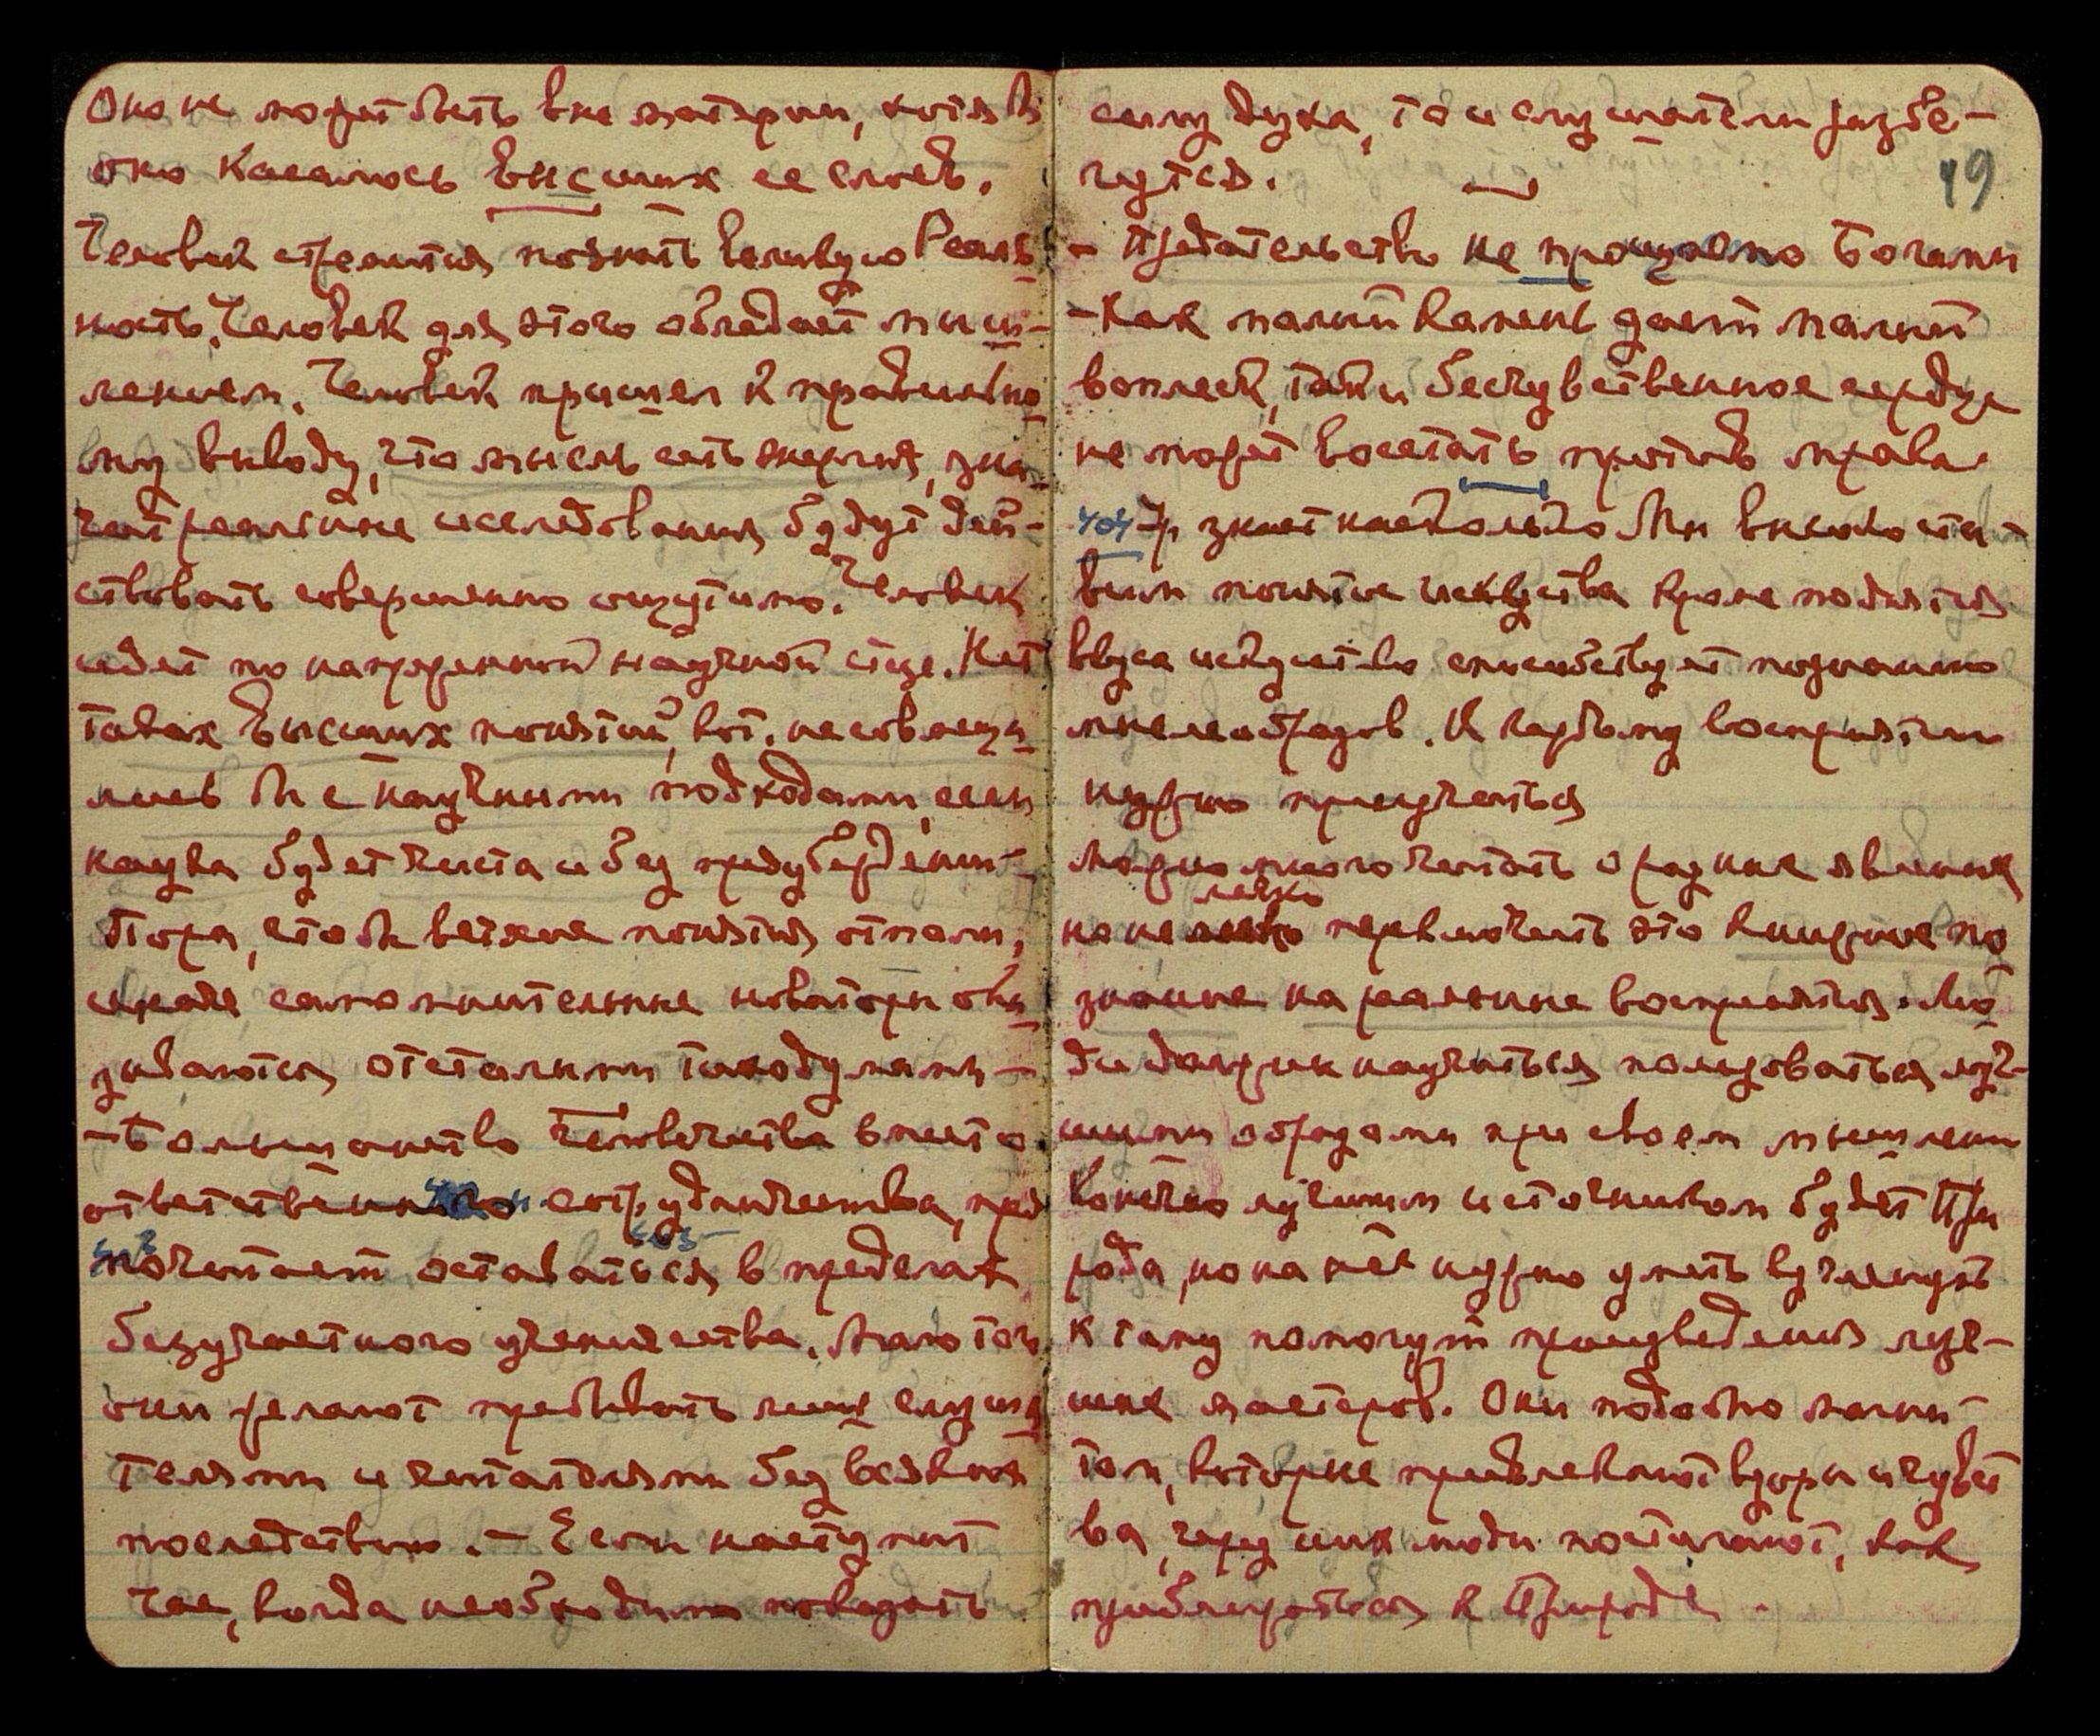 Оно не может быть вне материи, хотя б
оно касалось Высших ее слоев.
Человек стремится познать великую Реаль
ность. Человек для этого обладает мыш-
лением. Человек пришел к правильно
му выводу, что мысль есть энергия, зна
чит реальные исследования будут дей-
ствовать совершенно ощутимо. Человек
идет по напряженной научной стезе. Нет
таких Высших понятий, кот. не совмеща
лись бы с научными подходами, если
наука будет чиста и без предубеждений-
Пора, чтобы ветхие понятия отпали,
иначе самомнительные новаторы ока
зываются отсталыми тиходумами-
- Большинство человечества вместо
ответственного сотрудничества, пред
почитает оставаться в пределах
403
безучастного ученичества. Мало того
они желают пребывать лишь слуша
телями и читателями без всяких
последствий. - Если наступит
час, когда необходимо показать
силу духа, то и слушатели разбе-
гутся.
49
- Предательство не прощено Богами
- Как малый камень дает малый
всплеск, так и бесчувственное сердце
не может восстать против мрака
404 - Ур. знает насколько Мы высоко ста
вим понятие искусства кроме поднятия
вкуса искусство способствует познанию
мыслеобразов. К каждому восприятию
нужно приучаться
Можно много читать о разных явлениях
легко
но не переключить это книжное по
знание на реальные восприятия. Лю
ди должны научиться пользоваться луч-
шими образами при своем мышлении
Конечно лучшим источником будет При
рода, но на неё нужно уметь взглянуть
К тому помогут произведения луч-
ших мастеров. Они подобно магни-
там, которые привлекают взоры и чувст
ва, через них люди постигают, как
приблизиться к Природе.